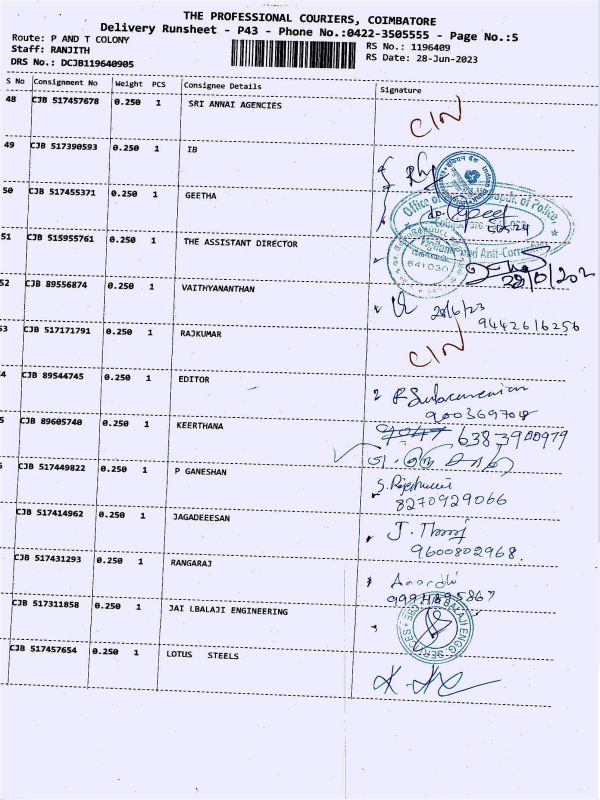 THE PROFESSIONAL COURIERS, COIMBATORE
Delivery Runsheet - P43 - Phone No.:0422-3505555 - Page No.:5
Route: P AND T COLONY
RS No.: 1196409
Staff: RANJITH
RS Date: 28-Jun-2023
DRS No.: DCJB119640905
S No Consignment No Weight PCS Consignee Details Signature
48 CJB 517457678 0.250 1 SRI ANNAI AGENCIES
CIN
49 CJB 517390593 0.250 1 IB
50 CJB 517455371 0.250 1 GEETHA
51 CJB 515955761 0.250 1 THE ASSISTANT DIRECTOR
641030
52 CJB 89556874 0.250 1 VAITHYANANTHAN
28/6/23
9442616256
53 CJB 517171791 0.250 1 RAJKUMAR
CIN
4 CJB 89544745 0.250 1 EDITOR
R. Subramanian
9003697048
5 CJB 89605740 0.250 1 KEERTHANA
6383900979
CJB 517449822 0.250 1 P GANESHAN
8270929066
CJB 517414962 0.250 1 JAGADEEESAN
9600802968.
CJB 517431293 0.250 1 RANGARAJ
CJB 517311858 0.250 1 JAI LBALAJI ENGINEERING
CJB 517457654 0.250 1 LOTUS STEELS